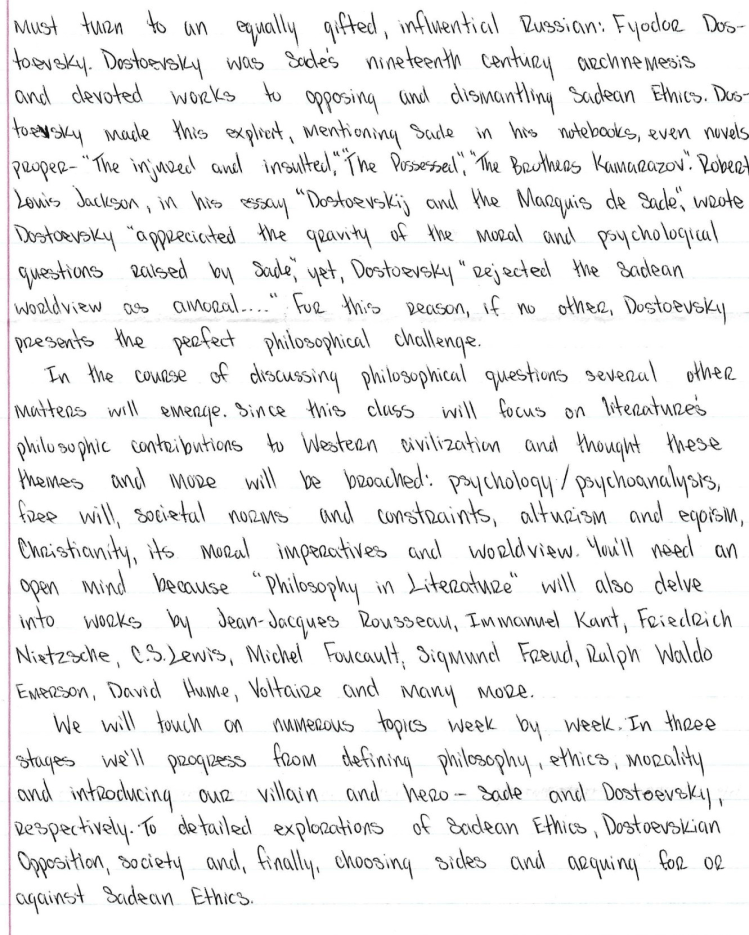 must turn to an equally gifted, influential Russian: Fyodor Dos-
toevsky. Dostoevsky was Sade's nineteenth century archnemesis
and devoted works to opposing and dismantling Sadean Ethics. Dos-
toevsky made this explicit, mentioning Sade in his notebooks, even novels
proper- "The injured and insulted," "The Possessed", "The Brothers Kamarazov". Robert
Louis Jackson, in his essay "Dostoevskij and the Marquis de Sade", wrote
Dostoevsky "appreciated the gravity of the moral and psychological
questions raised by Sade," yet, Dostoevsky "rejected the Sadean
worldview as amoral...." For this reason, if no other, Dostoevsky
presents the perfect philosophical challenge.
In the course of discussing philosophical questions several other
matters will emerge. Since this class will focus on literature's
philosophic contributions to Western civilization and thought these
themes and more will be broached: psychology/psychoanalysis,
free will, societal norms and constraints, alturism and egoism,
Christianity, its moral imperatives and worldview. You'll need an
open mind because "Philosophy in Literature" will also delve
into works by Jean-Jacques Rousseau, Immanuel Kant, Friedrich
Nietzsche, C.S. Lewis, Michel Foucault, Sigmund Freud, Ralph Waldo
Emerson, David Hume, Voltaire and many more.
We will touch on numerous topics week by week. In three
stages we'll progress from defining philosophy, ethics, morality
and introducing our villain and hero - Sade and Dostoevsky,
respectively. To detailed explorations of Sadean Ethics, Dostoevskian
Opposition, society and, finally, choosing sides and arguing for or
against Sadean Ethics.